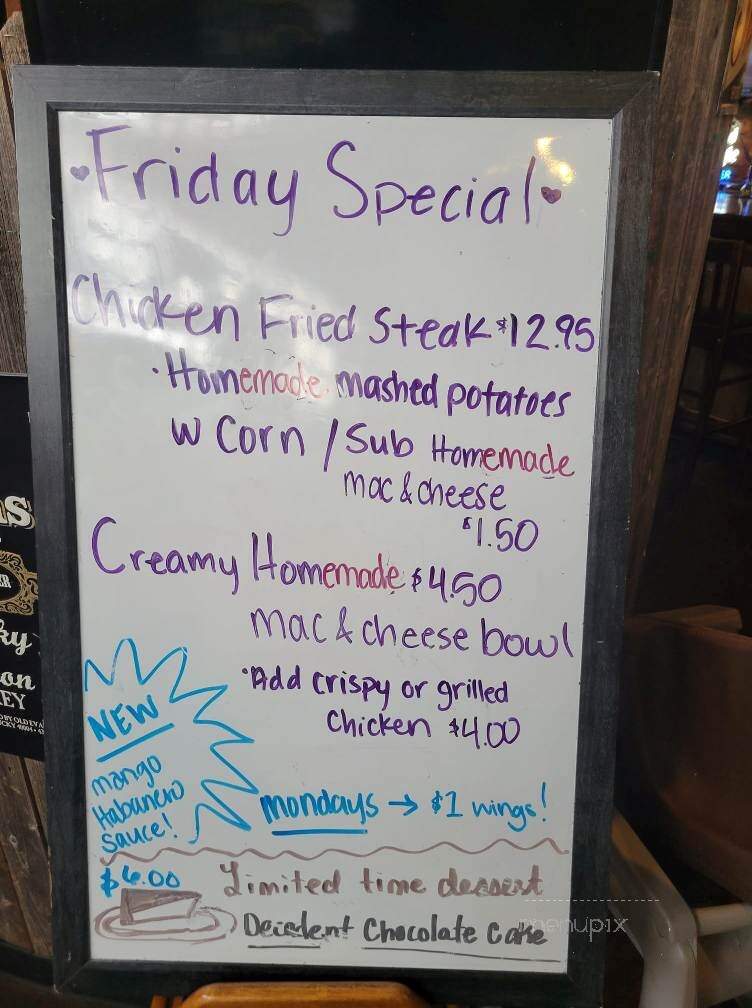 Friday Special
Chicken Fried Steak $12.95
· Homemade mashed potatoes
w Corn / Sub Homemade
mac & cheese
$1.50
Creamy Homemade $4.50
mac & cheese bowl
· Add crispy or grilled
Chicken $4.00
NEW
mango
Habanero
Sauce!
mondays → $1 wings!
$6.00
Limited time dessert
Decedent Chocolate Cake
menupix